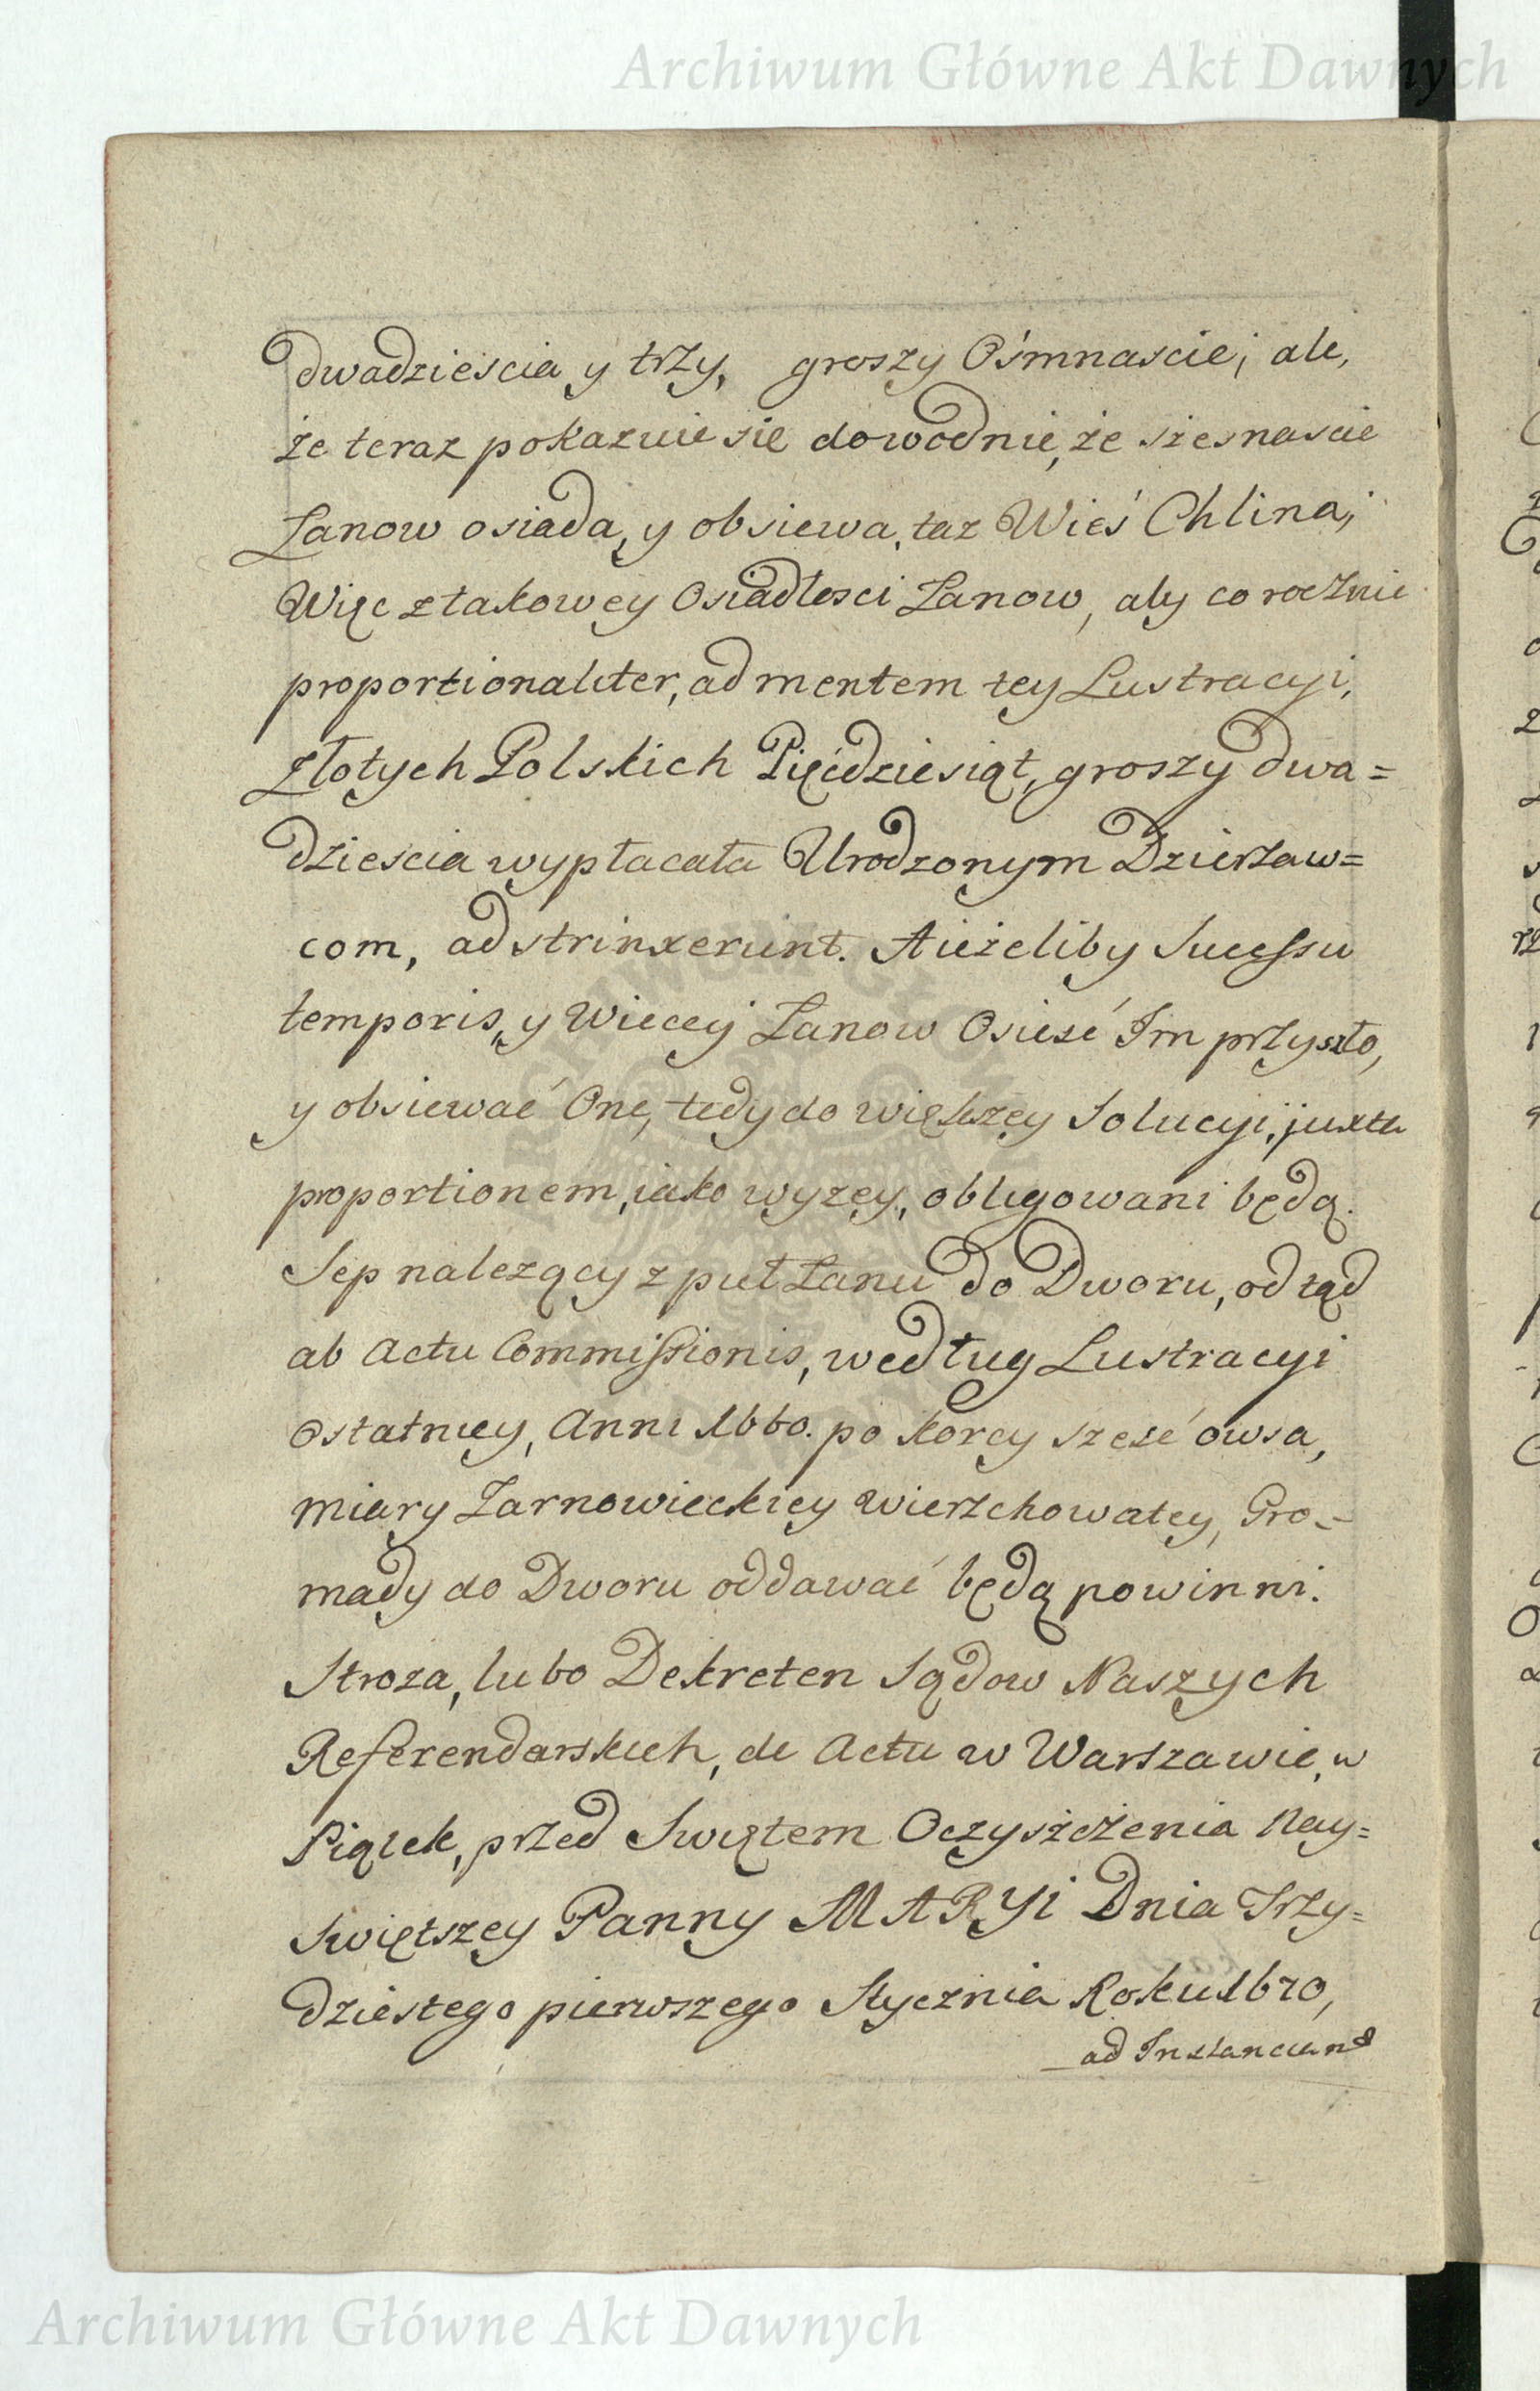 Archiwum Główne Akt Dawnych
dwadziescia y trzy, groszy Ośmnascie; ale,
że teraz pokazuie się dowodnie, że szesnascie
Łanow osiada, y obsiewa, taz Wieś Chlina;
Więc z takowey Osiadłosci Łanow, aby corocznie
proportionaliter, ad mentem tey Lustracyi,
złotych Polskich Pięćdziesiąt, groszy dwa=
dziescia wypłacała Urodzonym Dzierżaw=
com, adstrinxerunt. A ieżeliby Sucessu
temporis, y Wiecey Łanow Osieść Im przyszło,
y obsiewać One, tedy do większey Solucyi, juxta
proportionem, iako wyzey, obligowani będą.
Sep nalezący z puł Łanu do Dworu, odtąd
ab Actu Commissionis, według Lustracyi
ostatniey, Anni 1660. po korcy sześć owsa,
miary Żarnowieckiey wierzchowatey, Gro=
mady do Dworu oddawać będą powinni.
Stroza, lubo Dekreten Sądow Naszych
Referendarskich, de Actu w Warszawie, w
Piątek, przed Swiętem Oczyszczenia Nay=
swiętszey Panny MARYi Dnia Trzy=
dziestego pierwszego Stycznia Roku 1620,
ad Instanciam
Archiwum Główne Akt Dawnych